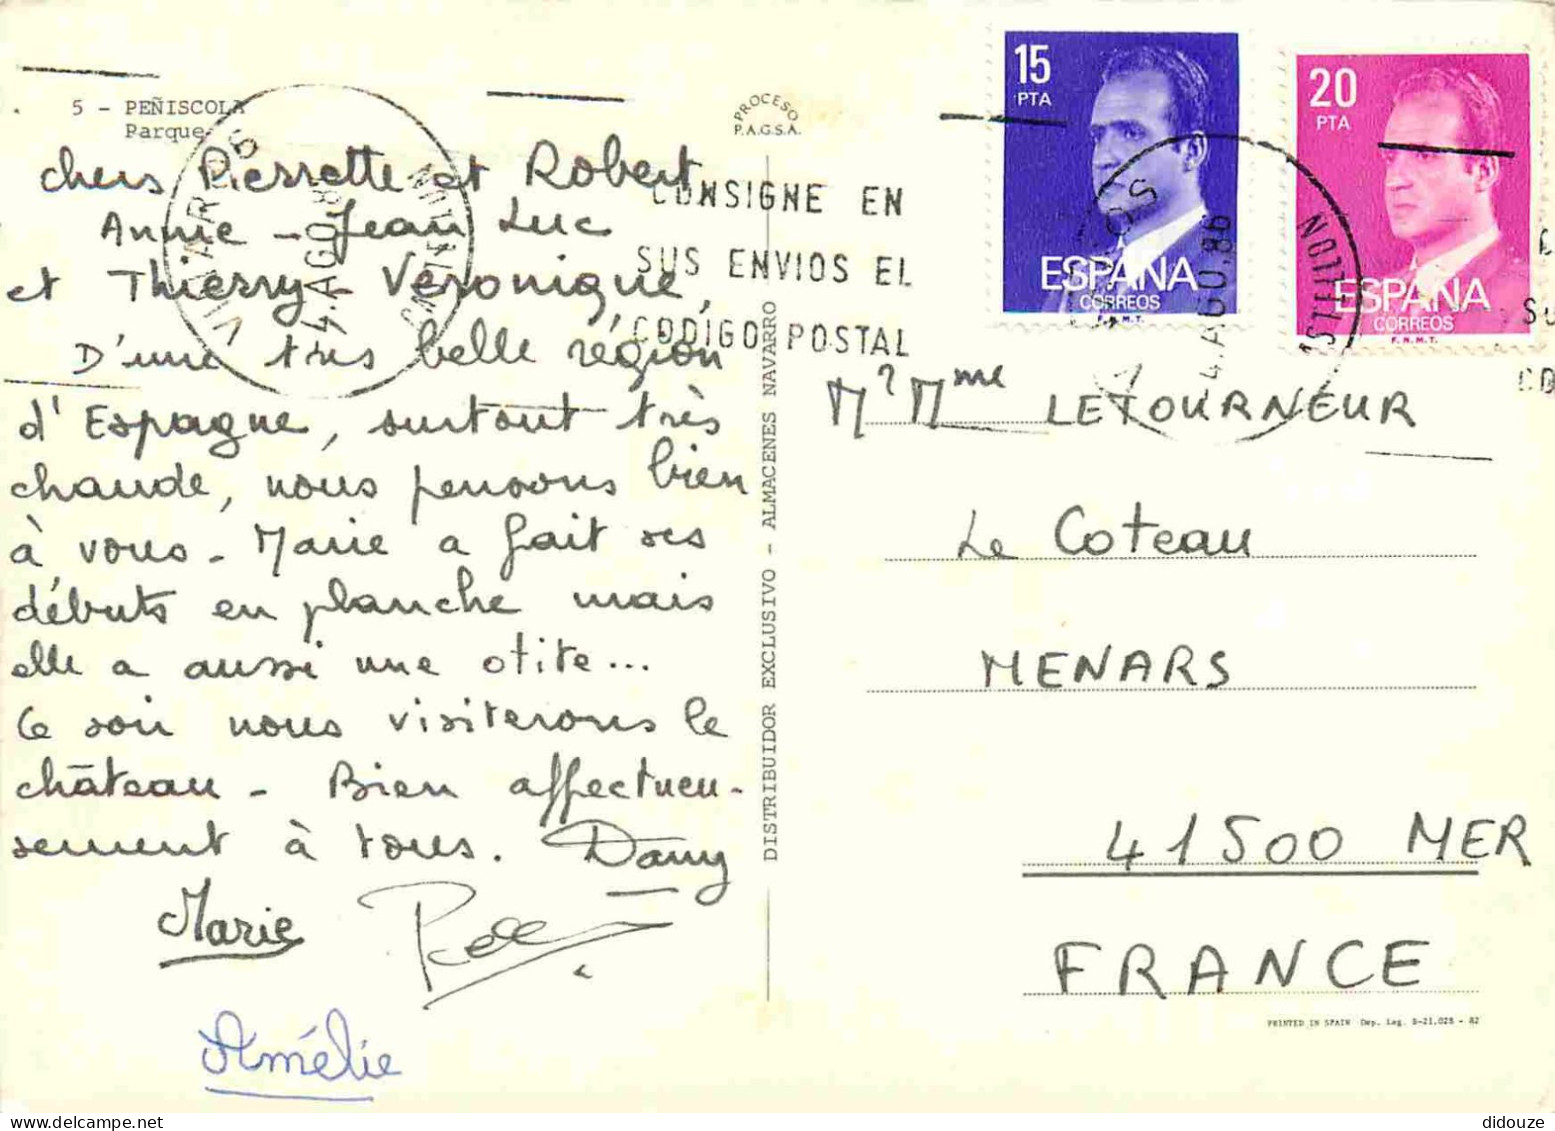 5 - PEÑISCOLA
Parque
PROCESO
P.A.G.S.A.
chers Pierrette et Robert
Annie - Jean Luc
et Thierry - Véronique,
D'une très belle région
d'Espagne, surtout très
chaude, nous pensons bien
à vous - Marie a fait ses
débuts en planche mais
elle a aussi une otite...
Ce soir nous visiterons le
château - Bien affectueu-
sement à tous. Dany
Marie
Amélie
DISTRIBUIDOR EXCLUSIVO - ALMACENES NAVARRO
CONSIGNE EN
SUS ENVIOS EL
CODIGO POSTAL
4.AGO.86
CASTELLON
15
PTA
ESPAÑA
CORREOS
F.N.M.T.
20
PTA
ESPAÑA
CORREOS
F.N.M.T.
Mr Mme LETOURNEUR
Le Coteau
MENARS
41500 MER
FRANCE
PRINTED IN SPAIN Dep. Leg. B-21.025 - 82
didouze